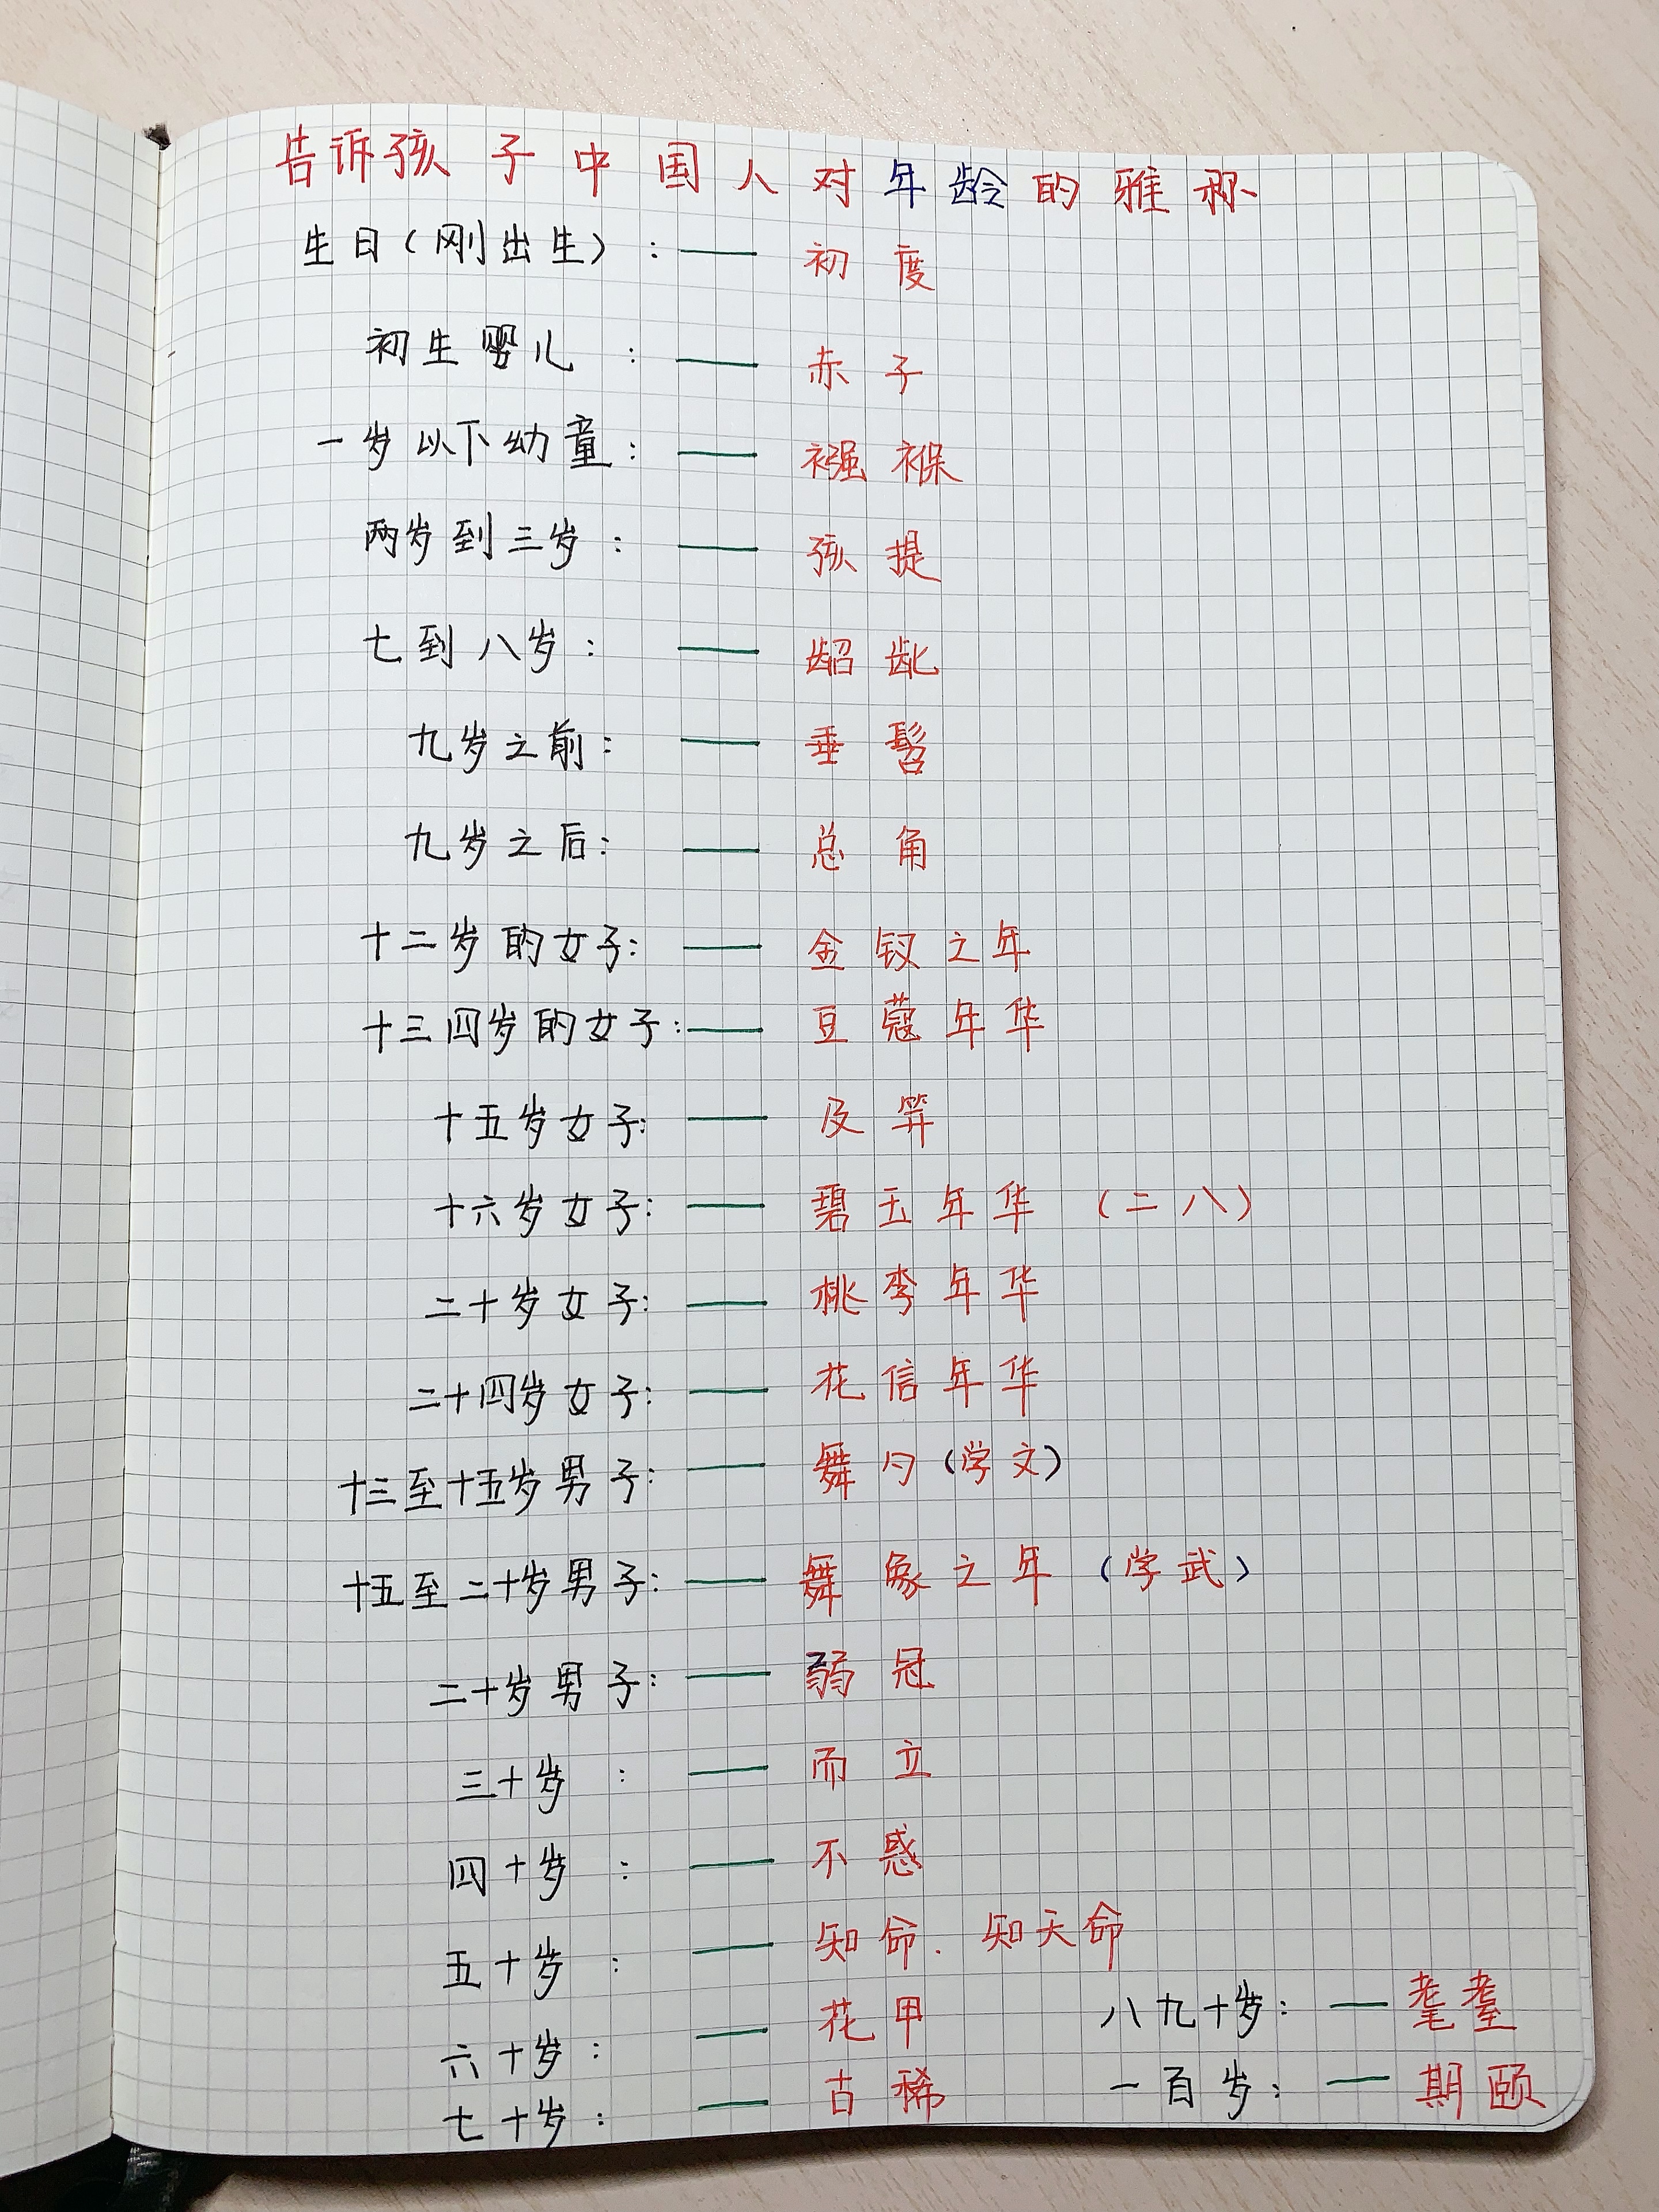 告诉孩子中国人对年龄的雅称
生日(刚出生):—— 初度
初生婴儿:—— 赤子
一岁以下幼童:—— 襁褓
两岁到三岁:—— 孩提
七到八岁:—— 龆龀
九岁之前:—— 垂髫
九岁之后:—— 总角
十二岁的女子:—— 金钗之年
十三四岁的女子:—— 豆蔻年华
十五岁女子:—— 及笄
十六岁女子:—— 碧玉年华(二八)
二十岁女子:—— 桃李年华
二十四岁女子:—— 花信年华
十三至十五岁男子:—— 舞勺(学文)
十五至二十岁男子:—— 舞象之年(学武)
二十岁男子:—— 弱冠
三十岁:—— 而立
四十岁:—— 不惑
五十岁:—— 知命.知天命
六十岁:—— 花甲
七十岁:—— 古稀
八九十岁:—— 耄耋
一百岁:—— 期颐